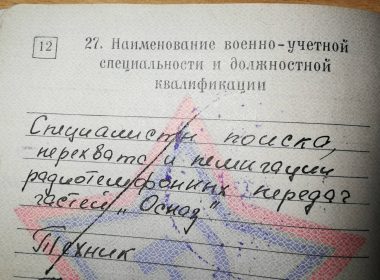 12
27. Наименование военно-учетной
специальности и должностной
квалификации
Специалисты поиска,
перехвата и пеленгации
радиотелефонных передач
частей „Осназ"
Техник